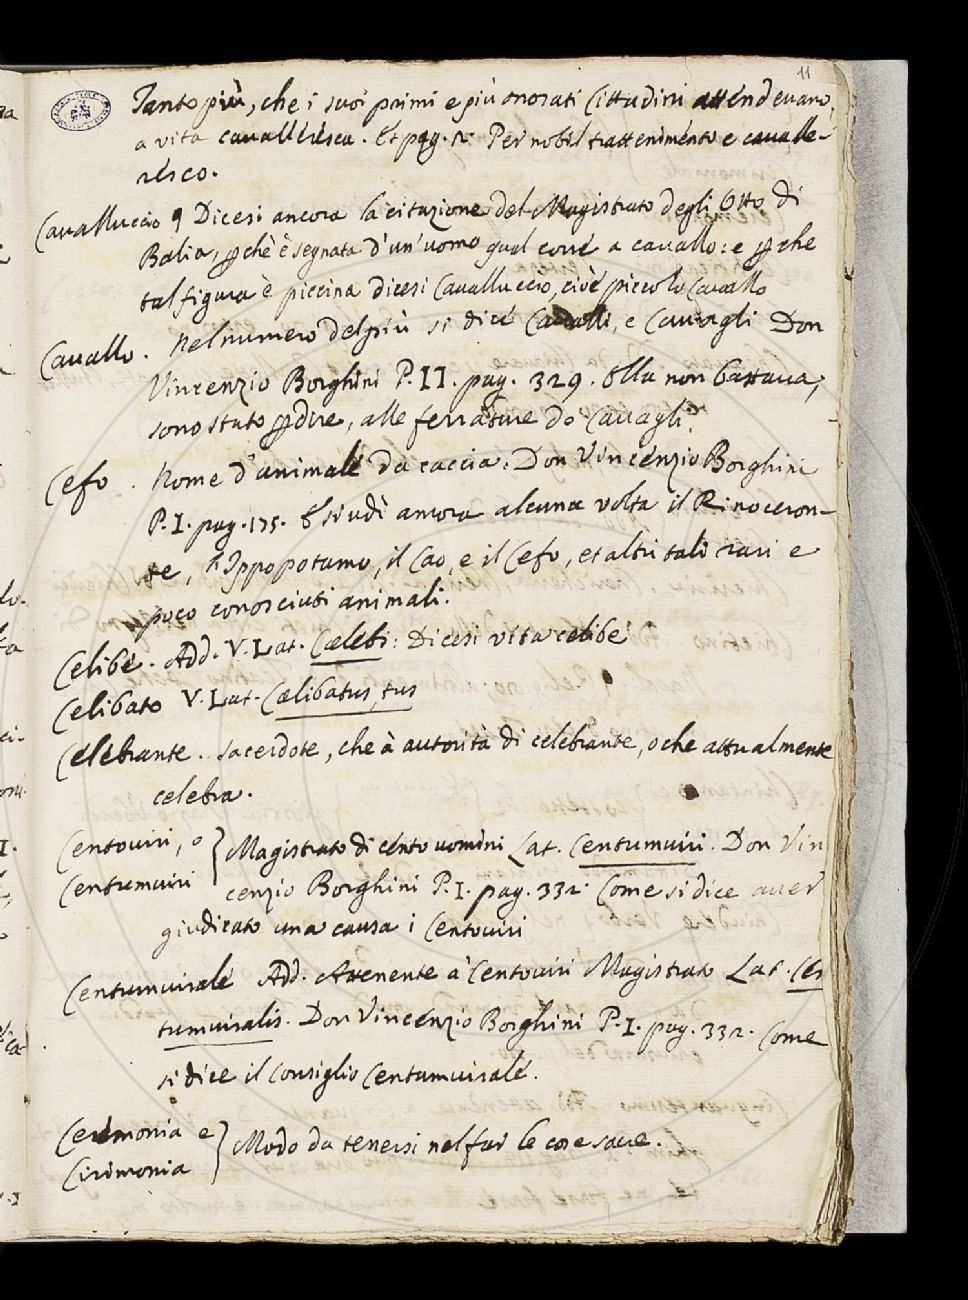 11
Tanto più, che i suoi primi e più onorati Cittadini attendevano
a vita cavalleresca. Et pag. 2. Per nobil trattenimento e cavalle-
resco.
Cavalluccio Dicesi ancora la citazione del Magistrato degli Otto di
Balia, pchè è segnata d'un'uomo qual corre a cavallo: e pche
tal figura è piccina dicesi Cavalluccio, cioè piccolo Cavallo
Cavallo. Nel numero del più si dice Cavalli, e Cavagli Don
Vincenzio Borghini P. II. pag. 329. Ella non battava,
sono stato p dire, alle ferrature do Cavagli.
Cefo. Nome d'animale da caccia. Don Vincenzio Borghini
P. I. pag. 175. E si udì ancora alcuna volta il Rinoceron-
te, l'Ippopotamo, il Cao, e il Cefo, et altri tali rari e
poco conosciuti animali.
Celibe. Add. V. Lat. Cælebs: Dicesi vita celibe
Celibato V. Lat. Cælibatus, tus
Celebrante. Sacerdote, che à autorità di celebrante, o che attualmente
celebra.
Centoviri, o } Magistrato di cento uomini Lat. Centumviri. Don Vin
Centumviri cenzio Borghini P. I. pag. 332. Come si dice aver
giudicato una causa i Centoviri
Centumvirale Add. Attenente a' Centoviri Magistrato Lat. Cen
tumviralis. Don Vincenzio Borghini P. I. pag. 332. Come
si dice il Consiglio Centumvirale.
Cerimonia e } Modo da tenersi nel far le cose sacre.
Cirimonia